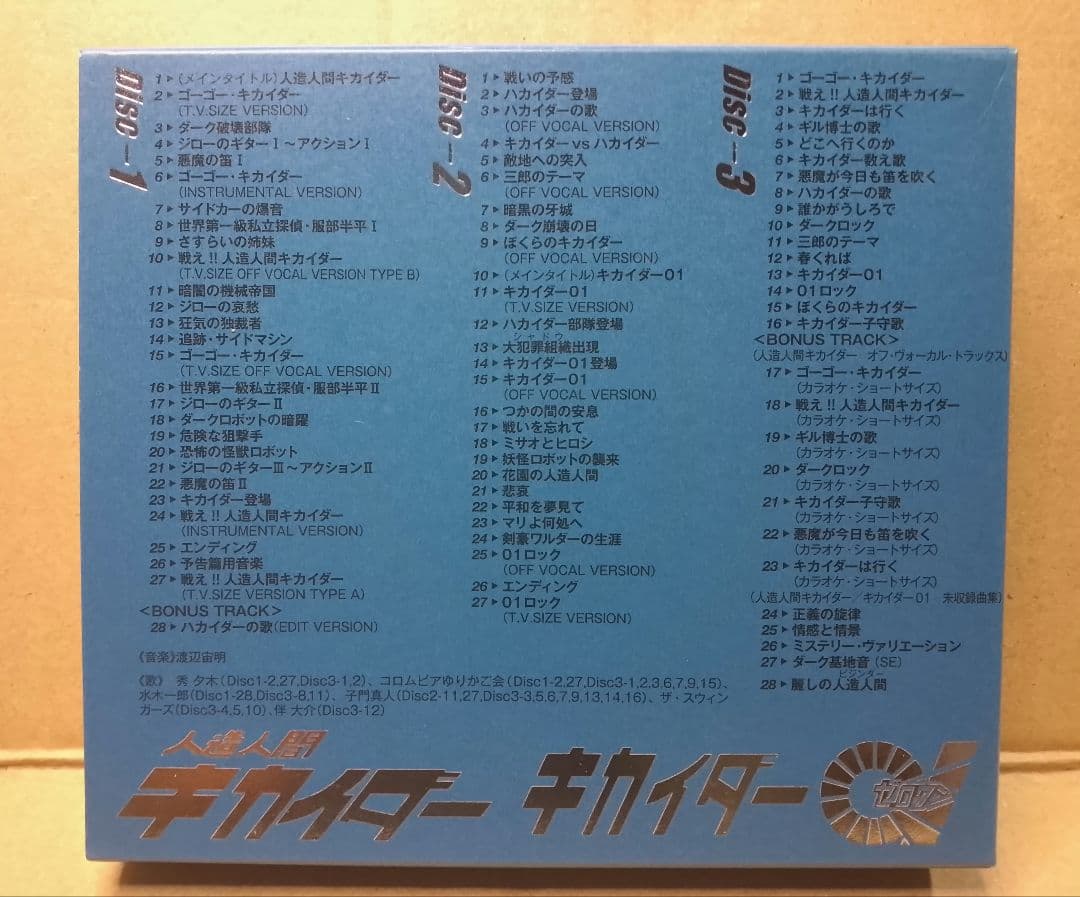 Disc-1
1▶(メインタイトル)人造人間キカイダー
2▶ゴーゴー・キカイダー
(T.V.SIZE VERSION)
3▶ダーク破壊部隊
4▶ジローのギターⅠ~アクションⅠ
5▶悪魔の笛Ⅰ
6▶ゴーゴー・キカイダー
(INSTRUMENTAL VERSION)
7▶サイドカーの爆音
8▶世界第一級私立探偵・服部半平Ⅰ
9▶さすらいの姉妹
10▶戦え!!人造人間キカイダー
(T.V.SIZE OFF VOCAL VERSION TYPE B)
11▶暗闇の機械帝国
12▶ジローの哀愁
13▶狂気の独裁者
14▶追跡・サイドマシン
15▶ゴーゴー・キカイダー
(T.V.SIZE OFF VOCAL VERSION)
16▶世界第一級私立探偵・服部半平Ⅱ
17▶ジローのギターⅡ
18▶ダークロボットの暗躍
19▶危険な狙撃手
20▶恐怖の怪獣ロボット
21▶ジローのギターⅢ~アクションⅡ
22▶悪魔の笛Ⅱ
23▶キカイダー登場
24▶戦え!!人造人間キカイダー
(INSTRUMENTAL VERSION)
25▶エンディング
26▶予告篇用音楽
27▶戦え!!人造人間キカイダー
(T.V.SIZE VERSION TYPE A)
<BONUS TRACK>
28▶ハカイダーの歌(EDIT VERSION)
Disc-2
1▶戦いの予感
2▶ハカイダー登場
3▶ハカイダーの歌
(OFF VOCAL VERSION)
4▶キカイダー vs ハカイダー
5▶敵地への突入
6▶三郎のテーマ
(OFF VOCAL VERSION)
7▶暗黒の牙城
8▶ダーク崩壊の日
9▶ぼくらのキカイダー
(OFF VOCAL VERSION)
10▶(メインタイトル)キカイダー01
11▶キカイダー01
(T.V.SIZE VERSION)
12▶ハカイダー部隊登場
シャドウ
13▶大犯罪組織出現
14▶キカイダー01登場
15▶キカイダー01
(OFF VOCAL VERSION)
16▶つかの間の安息
17▶戦いを忘れて
18▶ミサオとヒロシ
19▶妖怪ロボットの襲来
20▶花園の人造人間
21▶悲哀
22▶平和を夢見て
23▶マリよ何処へ
24▶剣豪ワルダーの生涯
25▶01ロック
(OFF VOCAL VERSION)
26▶エンディング
27▶01ロック
(T.V.SIZE VERSION)
Disc-3
1▶ゴーゴー・キカイダー
2▶戦え!!人造人間キカイダー
3▶キカイダーは行く
4▶ギル博士の歌
5▶どこへ行くのか
6▶キカイダー数え歌
7▶悪魔が今日も笛を吹く
8▶ハカイダーの歌
9▶誰かがうしろで
10▶ダークロック
11▶三郎のテーマ
12▶春くれば
13▶キカイダー01
14▶01ロック
15▶ぼくらのキカイダー
16▶キカイダー子守歌
<BONUS TRACK>
(人造人間キカイダー オフ・ヴォーカル・トラックス)
17▶ゴーゴー・キカイダー
(カラオケ・ショートサイズ)
18▶戦え!!人造人間キカイダー
(カラオケ・ショートサイズ)
19▶ギル博士の歌
(カラオケ・ショートサイズ)
20▶ダークロック
(カラオケ・ショートサイズ)
21▶キカイダー子守歌
(カラオケ・ショートサイズ)
22▶悪魔が今日も笛を吹く
(カラオケ・ショートサイズ)
23▶キカイダーは行く
(カラオケ・ショートサイズ)
(人造人間キカイダー/キカイダー01 未収録曲集)
24▶正義の旋律
25▶情感と情景
26▶ミステリー・ヴァリエーション
27▶ダーク基地音(SE)
ビジンダー
28▶麗しの人造人間
《音楽》渡辺宙明
《歌》 秀 夕木(Disc1-2,27,Disc3-1,2)、コロムビアゆりかご会(Disc1-2,27,Disc3-1,2,3,6,7,9,15)、
水木一郎(Disc1-28,Disc3-8,11)、子門真人(Disc2-11,27,Disc3-3,5,6,7,9,13,14,16)、ザ・スウィン
ガーズ(Disc3-4,5,10)、伴 大介(Disc3-12)
人造人間
キカイダー キカイダー01
ゼロワン